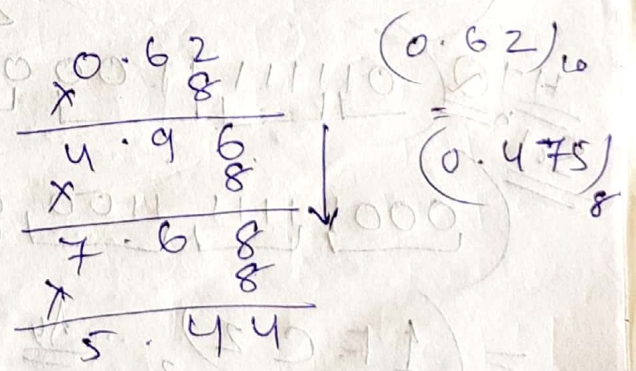 0.62
× 8
4.96
× 8
7.68
× 8
5.44
(0.62)₁₀
=
(0.475)₈
000